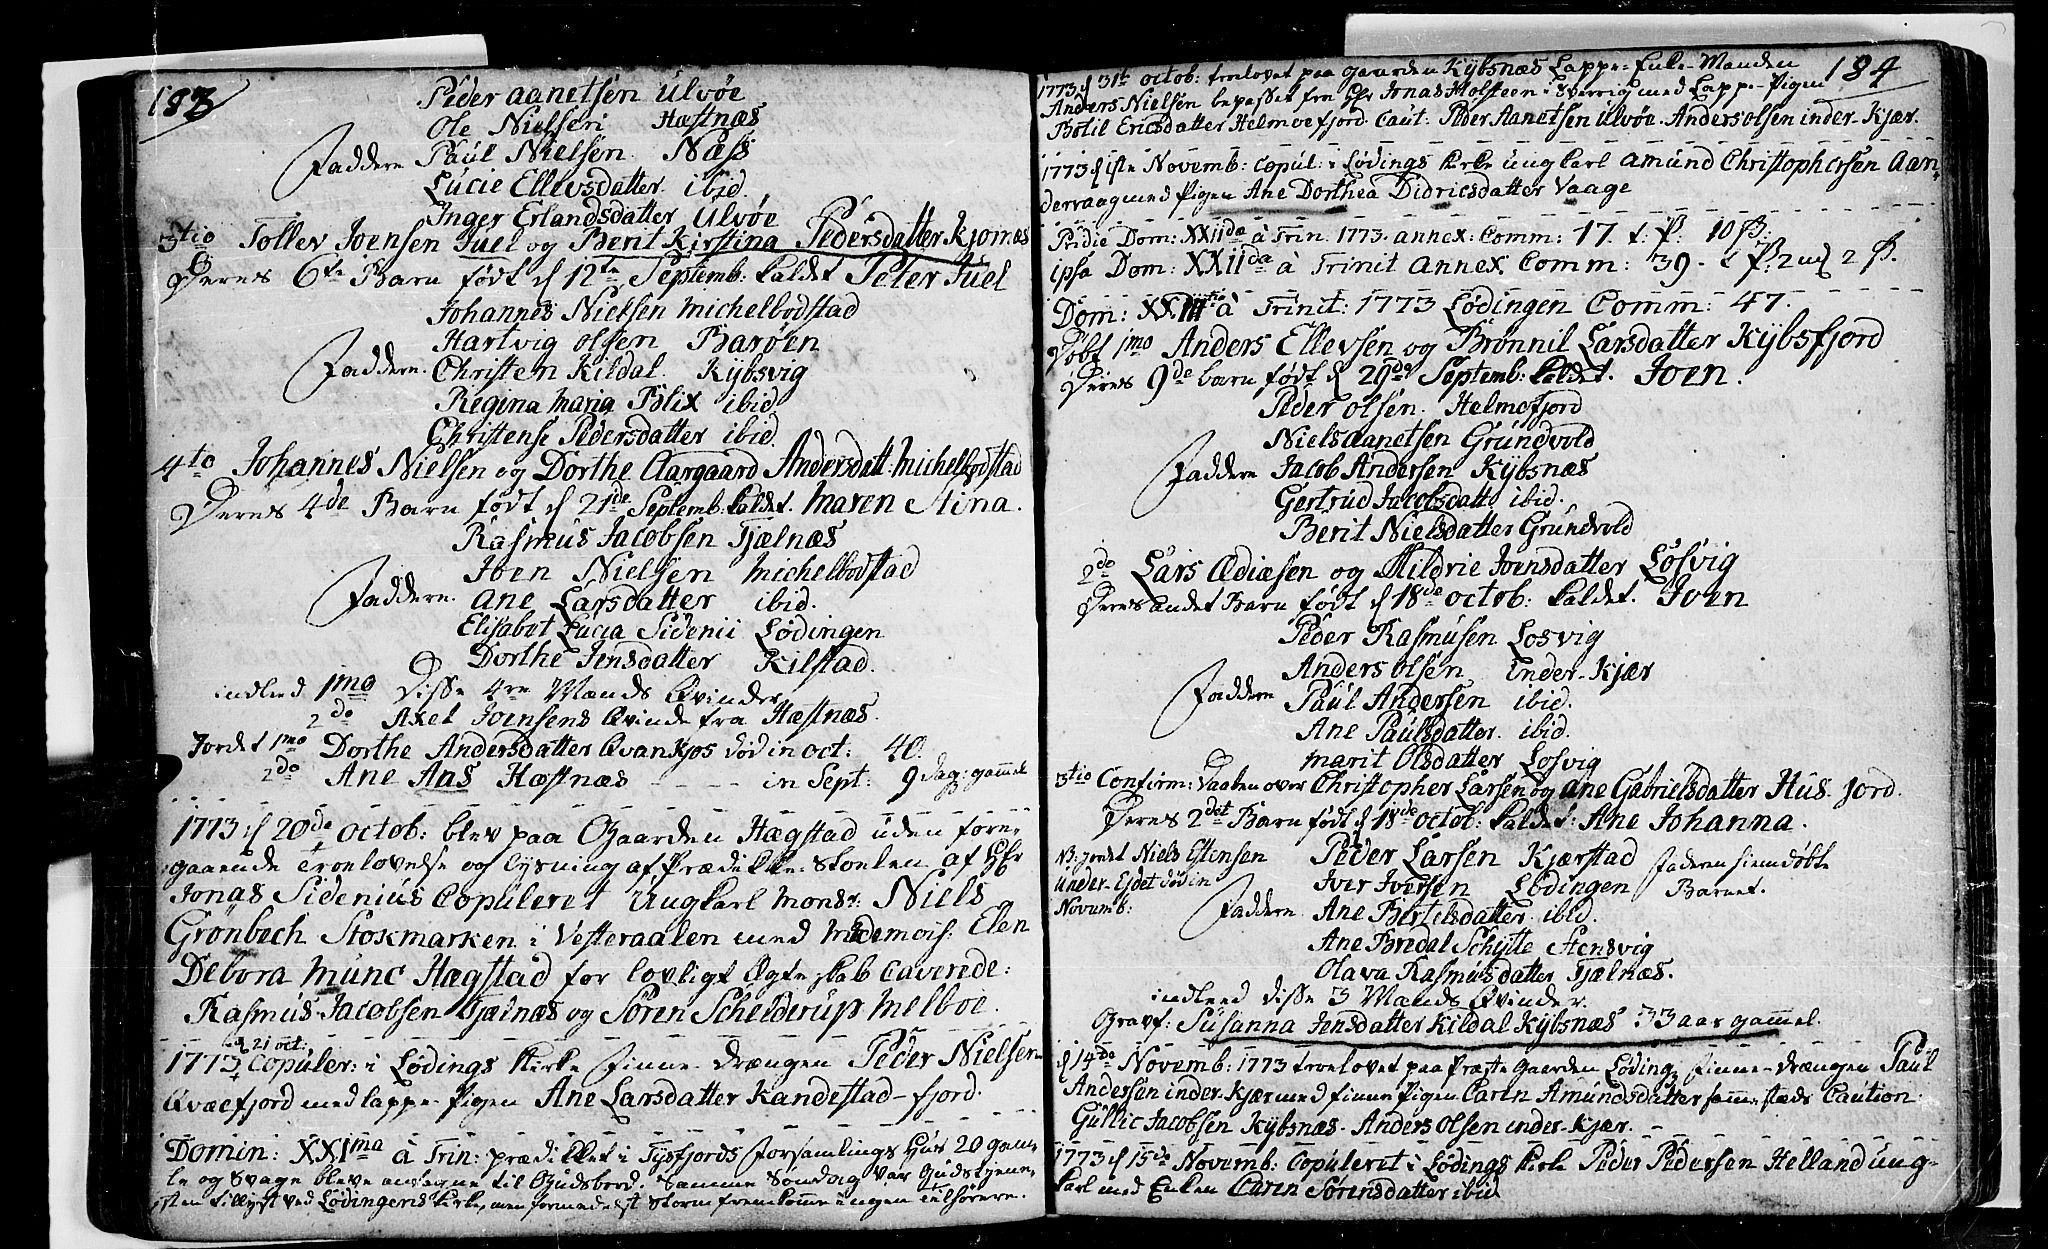 183
Peder Aanetsen Ulvøe
Ole Nielsen Hæstnæs
Faddere Paul Nielsen Næss
Lucie Ellevsdatter ibid.
Inger Erlandsdatter Ulvøe
3tio Tollev Joensen Juel og Berit Kirstina Pedersdatter Kjomæs
Deres 6te Barn født d 12te Septemb: kaldet Peter Juel
Johannes Nielsen Michelbodstad
Hartvig Olsen Barøen
Faddere. Christen Kildal Kybsvig
Regina Maria Blix ibid
Christense Pedersdatter ibid.
4to Johannes Nielsen og Dorthe Aargaard Andersdatt: Michelbodstad
Deres 4de Barn født d 21de Septemb: kaldet. Maren Stina.
Rasmus Jacobsen Tjælnæs
Joen Nielsen Michelbodstad
Faddere. Ane Larsdatter ibid.
Elisabet Lucia Sidenii Lødingen
Dorthe Jensdatter Kilstad.
indled 1mo Disse 4re Mænds Qvinder
2do Axel Joensens Qvinde fra Hæstnæs.
Jordet 1mo Dorthe Andersdatter Qvankjos død in Oct: 40.
2do Ane Aas Hæstnæs - - - - in Sept: 9 dag: gammel
1773 d 20de Octob: blev paa Gaarden Hægstad uden fore-
gaaende Troelovelse og Lysning af Prædikke-Stoelen af Hr
Jonas Sidenius Copuleret Ungkarl Monsr: Niels
Grønbech Stokmarken i Vesteraalen med Mademois: Elen
Debora Munc Hægstad for lovligt Ægteskab Caverede:
Rasmus Jacobsen Tjælnæs og Søren Schelderup Melboe.
d 21 oct:
1773 Copuler: i Lødings Kirke Finne-Drængen Peder Nielsen
Qvæfjord med Lappe-Pigen Ane Larsdatter Kandestad-fjord.
Domin: XXIma à Trin: prædikket i Tysfjords Forsamlings Huus 20 gam-
le og Svage bleve antagne til Guds bord. Samme Søndag var Gudstjene-
sten tillyst ved Lødingens Kirke, men formedelst Storm fremkomme ingen Tilhørere.
184
1773 d 31te Octob: troelovet paa Gaarden Kybsnæs Lappe-Enke-Manden
Anders Nielsen bepasset fra Hr Jonas Holsteen i Sverrig med Lappe-Pigen
Botil Ericsdatter Helmoefjord. Caut: Peder Aanetsen Ulvøe. Anders Olsen inder-Kjær.
1773 d 1ste Novemb: Copul: i Lødings Kirke Ungkarl Amund Christophersen Aan-
dervaag med Pigen Ane Dorthea Didricsdatter Vaage
Pridie Dom: XXIIda à Trin. 1773. Annex: Comm: 17 t: P: 10 ß:
ipsa Dom: XXIIda à Trinit Annex Comm: 39. t P: 2 md 2 ß.
Dom: XXIIItia à Trinit: 1773 Lødingen Comm: 47.
Døbt 1mo Anders Ellevsen og Brønnil Larsdatter Kybsfjord
Deres 9de barn født d 29de Septemb: kaldet. Joen.
Peder Olsen. Helmofjord
Niels Aanetsen Grundvold
Faddere Jacob Andersen Kybsnæs
Gertrud Jacobsdatt: ibid.
Berit Nielsdatter Grundvold
2do Lars Ediæsen og Hildrie Joensdatter Losvig
Deres andet Barn født d 18de Octob: kaldet. Joen
Peder Rasmusen Losvig
Anders Olsen Inder-Kjær
Faddere Paul Andersen ibid.
Ane Paulsdatter ibid.
Marit Olsdatter Losvig
3tio Confirm: Daaben over Christopher Larsen og Ane Gabrielsdatter Hus Jord.
Deres 2det Barn født d 18de Octob: kaldet: Ane Johanna.
NB: jordet Niels Estensen
Under-Ejdet død in
Novemb:
Peder Larsen Kjærstad
Iver Iversen Lødingen
Faddere. Ane Bertelsdatter ibid.
Ane Bredal Schytte Stensvig
Olava Rasmusdatter Tjælnæs.
Faderen hiemdøbte
Barnet.
indleed disse 3 Mænds Qvinder.
Gravf: Susanna Jensdatter Kildal Kybsnæs 33 aar gammel.
d 14de Novemb: 1773 troelovet paa Præstegaarden Løding Finne-Drængen Paul
Andersen inder-Kjær med Finne Pigen Caren Amundsdatter samme-stæds Caution:
Gullic Jacobsen Kybsnæs. Anders Olsen inder-Kjær.
1773 d 15de Novemb: Copuleret i Lødings Kirke Peder Pedersen Helland ung-
karl med Enken Caren Sørensdatter ibid